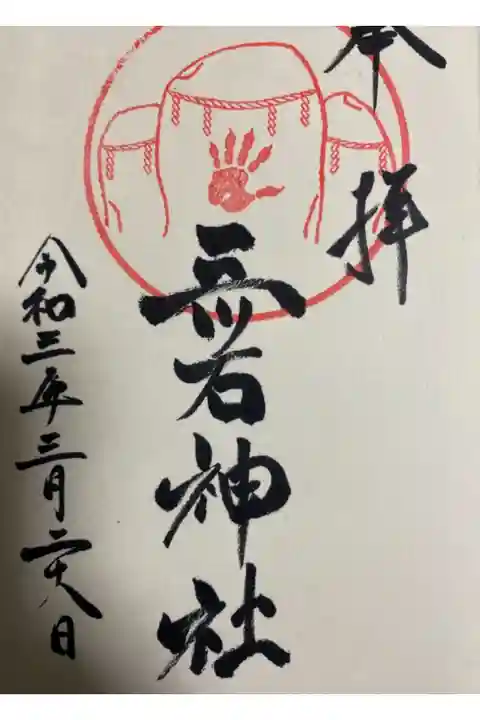 奉拝
三ツ石神社
令和三年三月二十八日